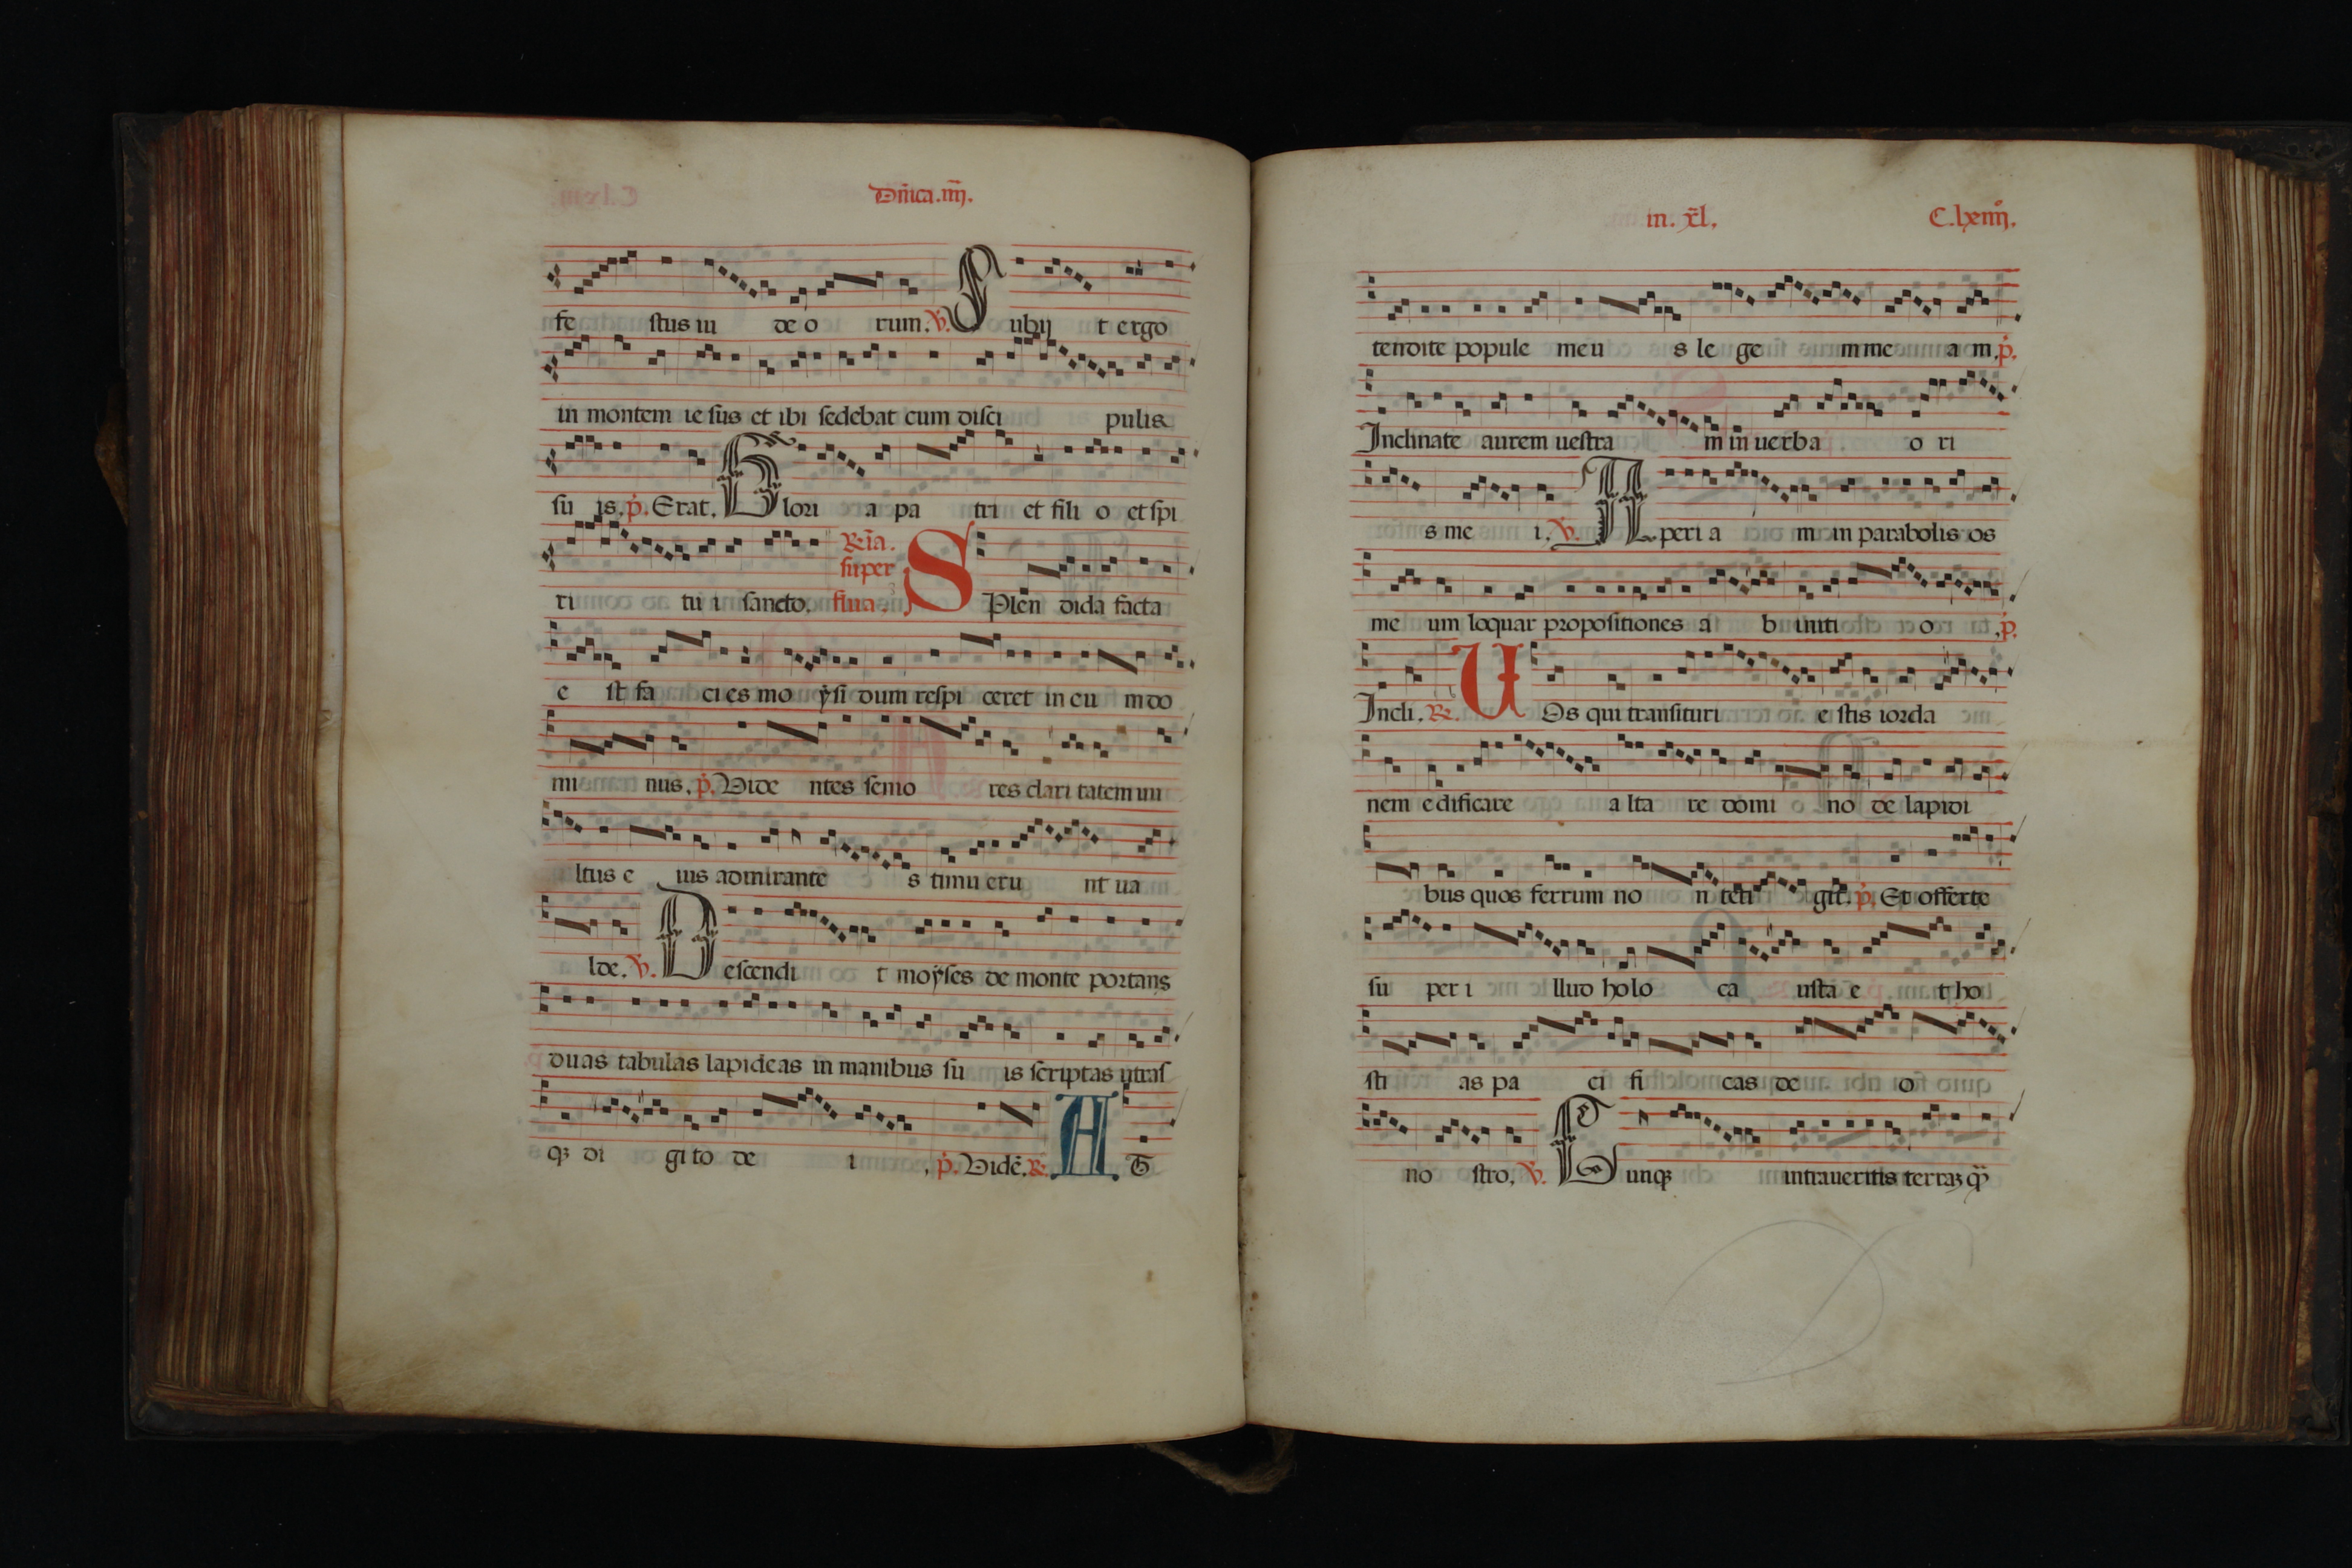 Dñica.iiij.
fe stus iu de o rum. v̉. S ubij t ergo
in montem ie sus et ibi sedebat cum disci pulis
su is. p̉. Erat. G lori a pa tri et fili o et spi
ri tu i sancto. R̃ia. super flua. S Plen dida facta
e st fa ci es mo ẏsi dum respi ceret in eu m do
mi nus. p̉. Vide ntes senio res clari tatem uu
ltus e ius admirante s timu eru nt ua
lde. v̉. D escendi t moẏses de monte portans
duas tabulas lapideas in manibus su is scriptas utras
qꝫ di gi to de i . p̉. Vidẽ. R̃. A T
in. xl̃. C.lxiiij.
tendite popule meu s le ge m me a m. p̉.
Inclinate aurem uestra m in uerba o ri
s me i. v̉. A peri a m in parabolis os
me um loquar propositiones a b initi o . p̉.
Incli. R̃. U Os qui transituri e stis iorda
nem edificare a lta re domi no de lapidi
bus quos ferrum no n teti git. p̉. Et offerte
su per i llud holo ca usta e t ho
sti as pa ci fi cas de o
no stro. v̉. C unqꝫ intraueritis terraꝫ q̃